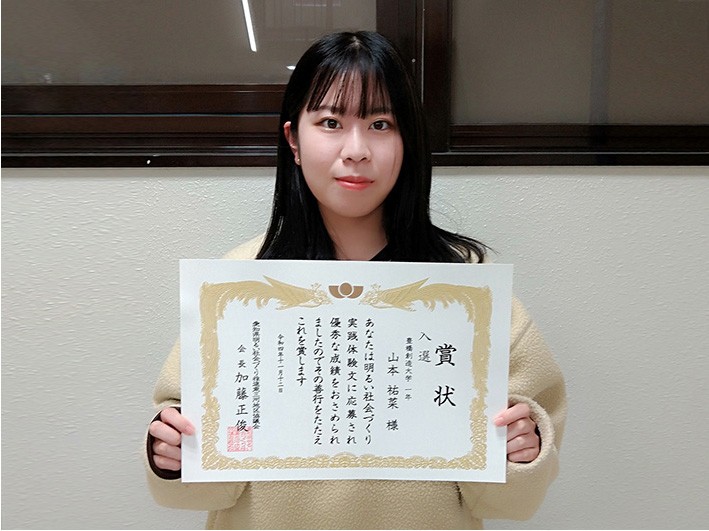 賞状
入選
豊橋創造大学 一年
山本 祐菜 様
あなたは明るい社会づくり
実践体験文に応募され
優秀な成績をおさめられ
ましたのでその善行をたたえ
これを賞します
令和四年十一月十二日
愛知県明るい社会づくり推進東三河地区協議会
会長 加藤正俊